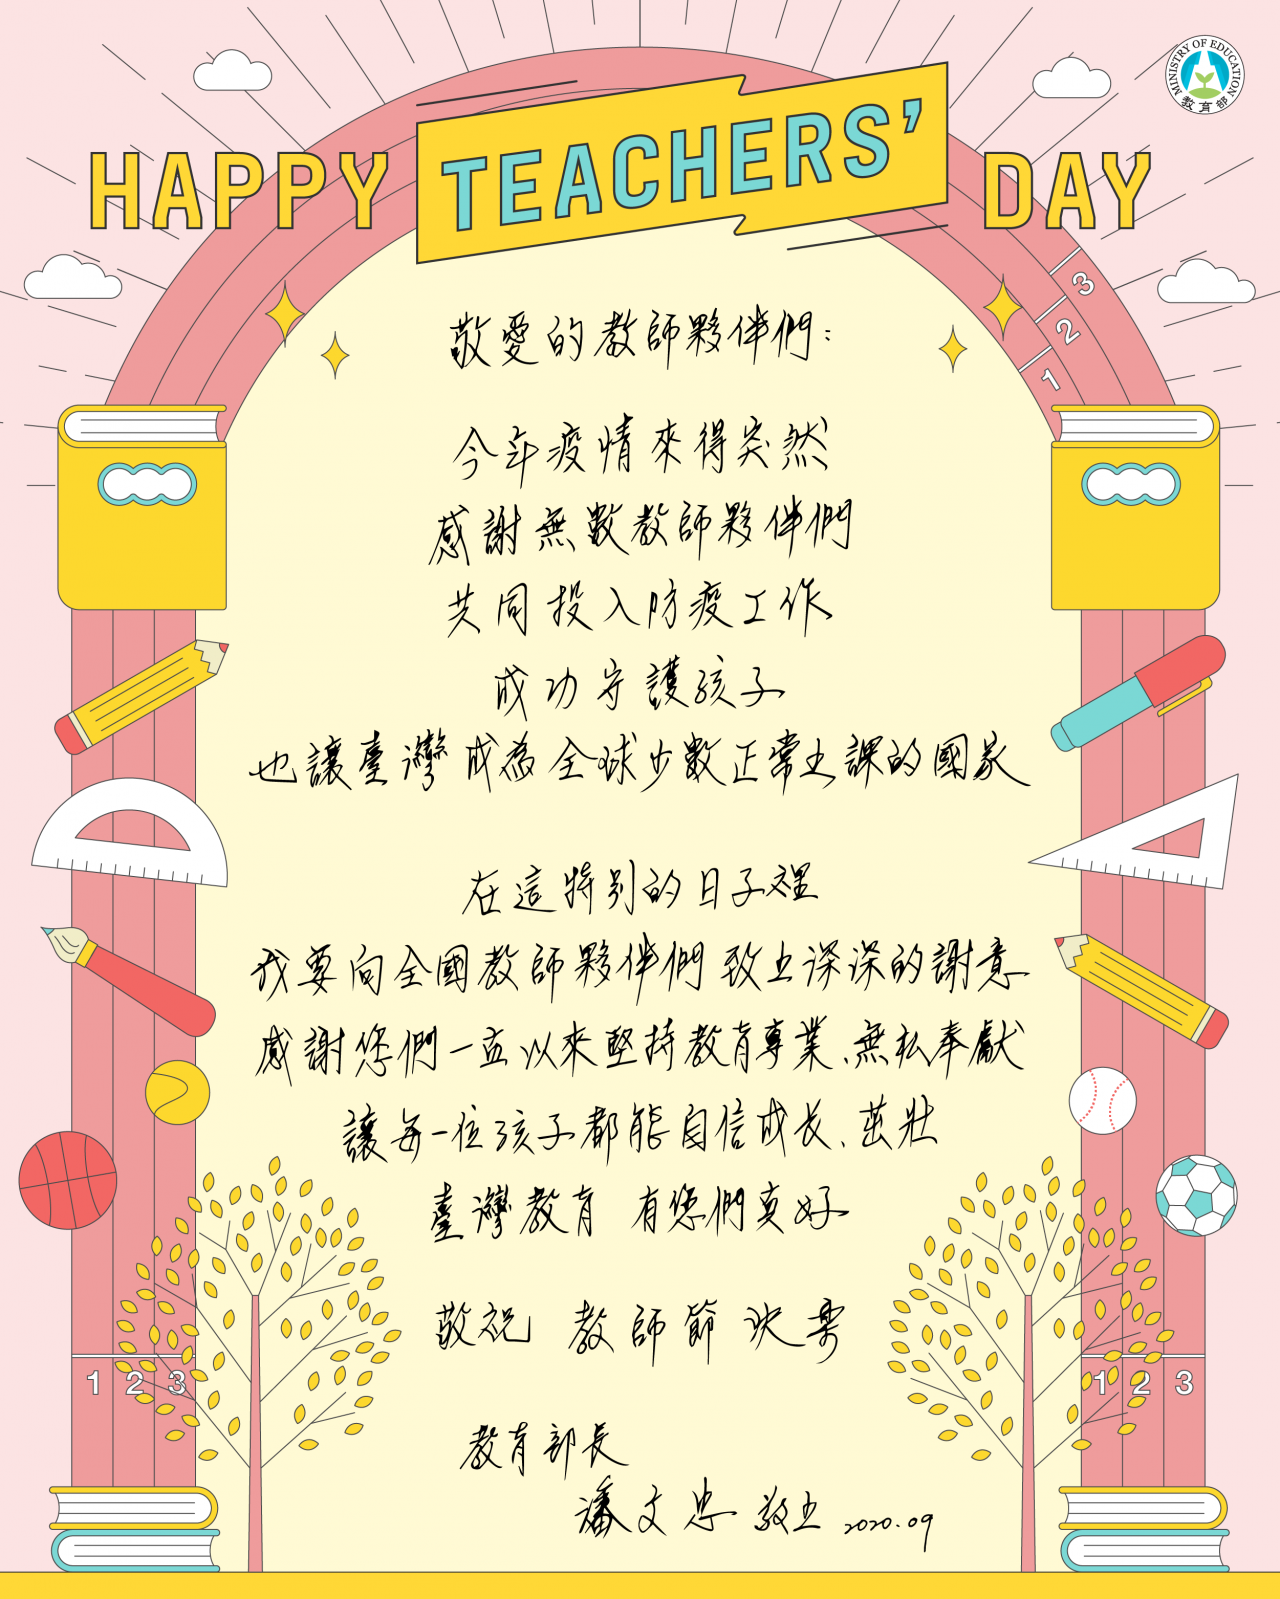 MINISTRY OF EDUCATION
教育部
HAPPY TEACHERS' DAY
3
2
1
敬愛的教師夥伴們：
今年疫情來得突然
感謝無數教師夥伴們
共同投入防疫工作
成功守護孩子
也讓臺灣成為全球少數正常上課的國家
在這特別的日子裡
我要向全國教師夥伴們致上深深的謝意
感謝您們一直以來堅持教育專業、無私奉獻
讓每一位孩子都能自信成長、茁壯
臺灣教育 有您們真好
敬祝 教師節 快樂
1 2 3
1 2 3
教育部長
潘文忠 敬上 2020.09